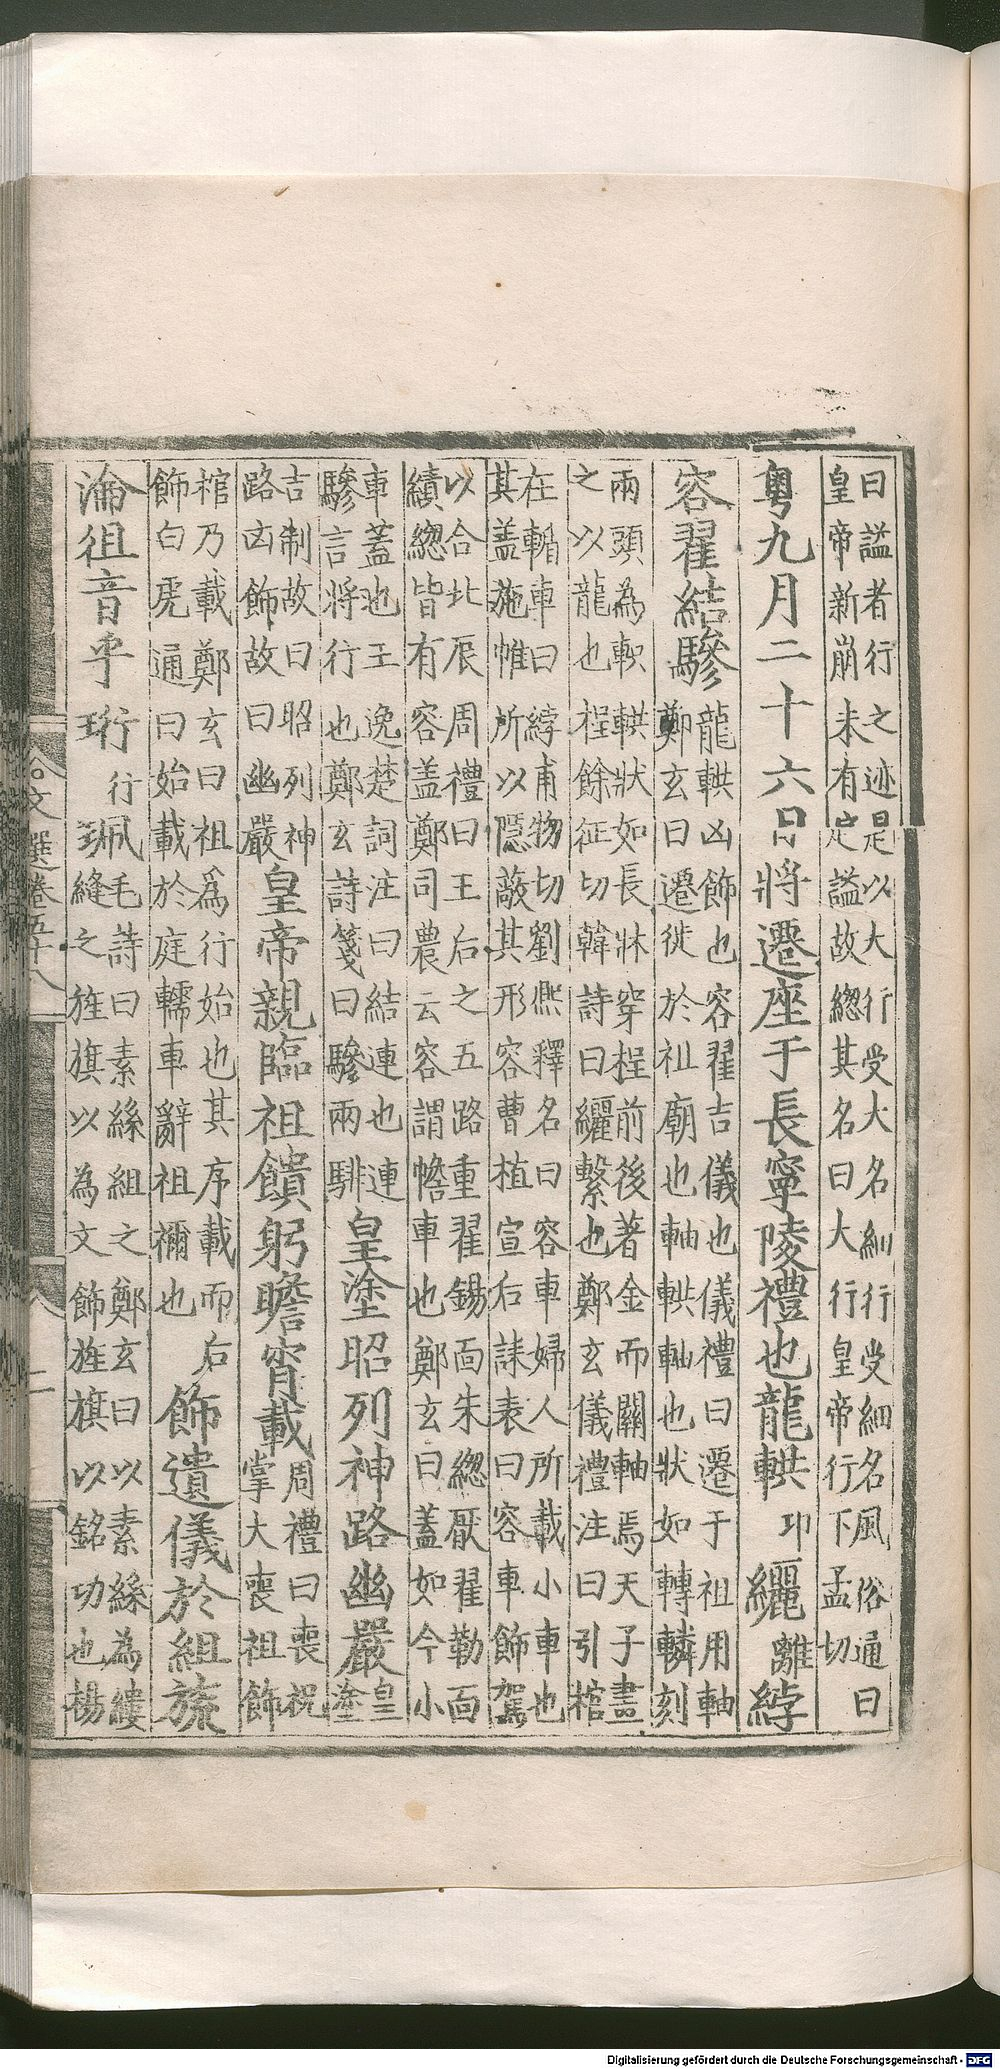 曰謚者行之迹是以大行受大名細行受細名風俗通曰
皇帝新崩未有定謚故緫其名曰大行皇帝行下孟切
粤九月二十六日將遷座于長寧陵禮也龍輁卭纚離綍
容翟結驂
龍輁凶飾也容翟吉儀也儀禮曰遷于祖用軸
鄭玄曰遷徙於祖廟也軸輁軸也狀如轉轔刻
兩頭為軹輁狀如長牀穿桯前後著金而關軸焉天子畫
之以龍也桯餘征切韓詩曰纚繫也鄭玄儀禮注曰引棺
在輴車曰綍甫物切劉熈釋名曰容車婦人所載小車也
其盖施帷所以隱蔽其形容曹植宣后誄表曰容車飾駕
以合北辰周禮曰王后之五路重翟錫面朱緫厭翟勒面
繢緫皆有容盖鄭司農云容謂幨車也鄭玄曰蓋如今小
車蓋也王逸楚詞注曰結連也連
驂言將行也鄭玄詩箋曰驂兩騑
皇塗昭列神路幽嚴
皇塗
吉制故曰昭列神
路凶飾故曰幽嚴
皇帝親臨祖饋躬瞻宵載
周禮曰喪祝
掌大喪祖飾
棺乃載鄭玄曰祖為行始也其序載而后
飾白虎通曰始載於庭輀車辭祖禰也
飾遺儀於組旒
淪徂音乎珩行珮
毛詩曰素絲組之鄭玄曰以素絲為縷
縫之旌旗以為文飾旌旗以銘功也楊
文選卷五十八
二
Digitalisierung gefördert durch die Deutsche Forschungsgemeinschaft - DFG